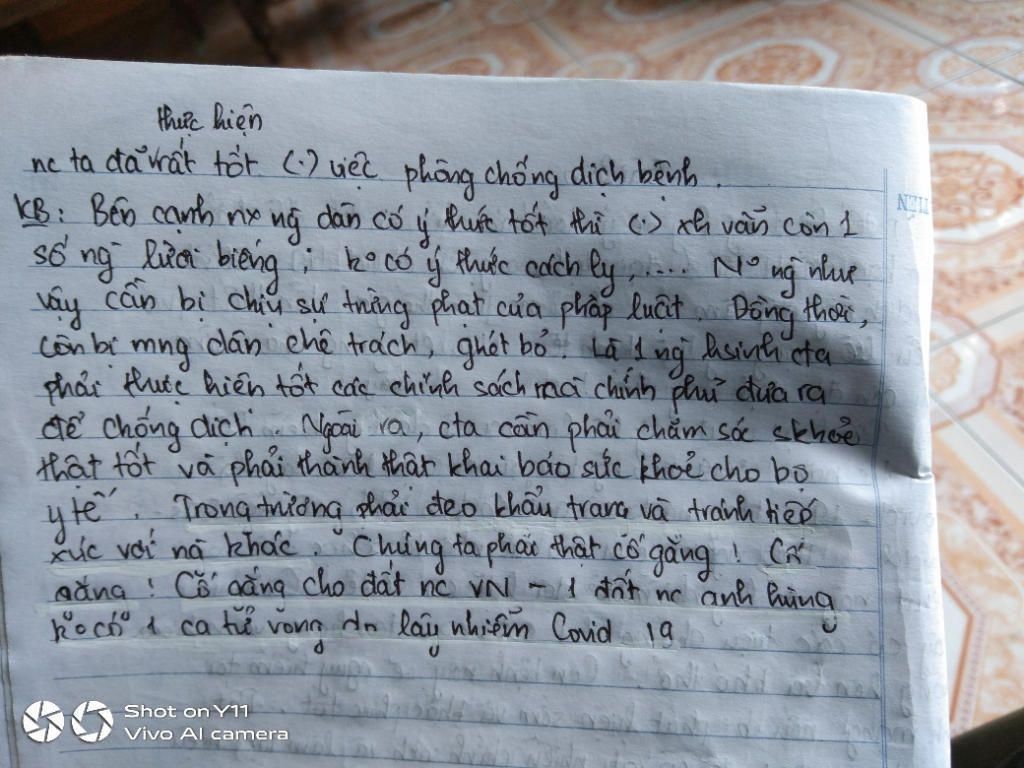 thực hiện
nc ta đã rất tốt (.) việc phòng chống dịch bệnh.
KB: Bên cạnh nx ng dân có ý thức tốt thì (.) xh vẫn còn 1
số ng lười biếng, k° có ý thức cách ly, .... N° ng như
vậy cần bị chịu sự trừng phạt của pháp luật. Đồng thời,
còn bị mng dân chê trách, ghét bỏ. Là 1 ng hsinh cta
phải thực hiện tốt các chính sách mà chính phủ đưa ra
để chống dịch. Ngoài ra, cta cần phải chăm sóc skhoẻ
thật tốt và phải thành thật khai báo sức khoẻ cho bộ
y tế. Trong trường phải đeo khẩu trang và tránh tiếp
xúc với ng khác. Chúng ta phải thật cố gắng! Cố
gắng! Cố gắng cho đất nc VN - 1 đất nc anh hùng
k° có 1 ca tử vong do lây nhiễm Covid 19
TIÊN
Shot on Y11
Vivo AI camera